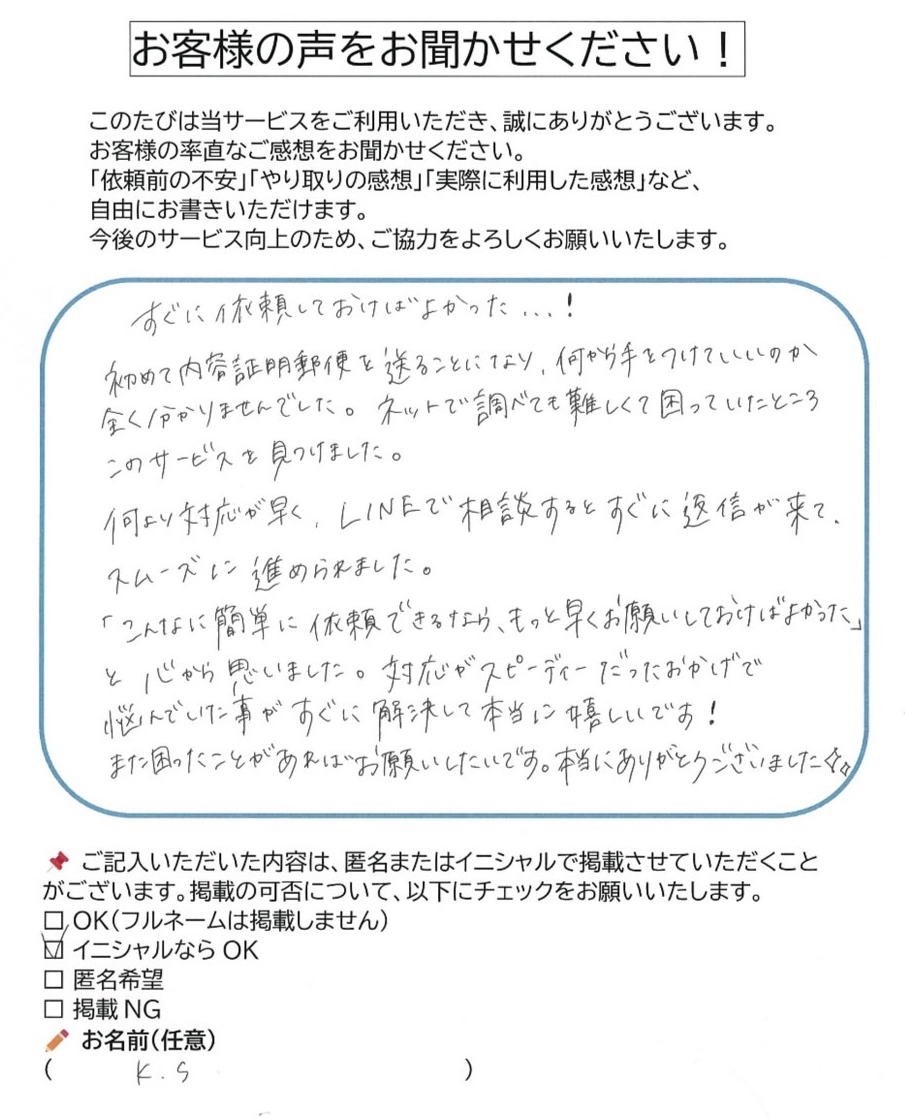 お客様の声をお聞かせください！
このたびは当サービスをご利用いただき、誠にありがとうございます。
お客様の率直なご感想をお聞かせください。
「依頼前の不安」「やり取りの感想」「実際に利用した感想」など、
自由にお書きいただけます。
今後のサービス向上のため、ご協力をよろしくお願いいたします。
すぐに依頼しておけばよかった...！
初めて内容証明郵便を送ることになり、何から手をつけていいのか
全く分かりませんでした。ネットで調べても難しくて困っていたところ
このサービスを見つけました。
何より対応が早く、LINEで相談するとすぐに返信が来て、
スムーズに進められました。
「こんなに簡単に依頼できるなら、もっと早くお願いしておけばよかった」
と心から思いました。対応がスピーディーだったおかげで
悩んでいた事がすぐに解決して本当に嬉しいです！
また困ったことがあればお願いしたいです。本当にありがとうございました☆☆
📌 ご記入いただいた内容は、匿名またはイニシャルで掲載させていただくこと
がございます。掲載の可否について、以下にチェックをお願いいたします。
☐ OK（フルネームは掲載しません）
☑ イニシャルなら OK
☐ 匿名希望
☐ 掲載 NG
✏️ お名前（任意）
( K.S )